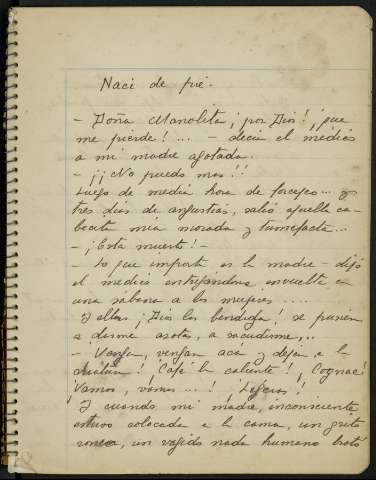 Naci de pié.
- Doña Manolita, ¡por Dios! ¡que
me pierde! ... - decia el médico
a mi madre agotada.
- ¡¡No puedo mas!!
Luego de media hora de forceps... y
tres dias de angustias, salió aquella ca-
becita mia morada y tumefacta...
- ¡Esta muerta! -
- Lo que importa es la madre - dijó
el medico entregándome envuelta en
una sabana a las mujeres ....
Y ellas ¡Dios las bendiga! se pusieron
a darme azotes, a sacudirme...
- Vengan, vengan aca y dejen a la
¡Café bien caliente! ¡Cognac!
¡Vamos, vamos...! ¡Ligeros!
Y cuando mi madre, inconsciente
estuvo colocada a la cama, un grito
ronco, un vagido nada humano brotó